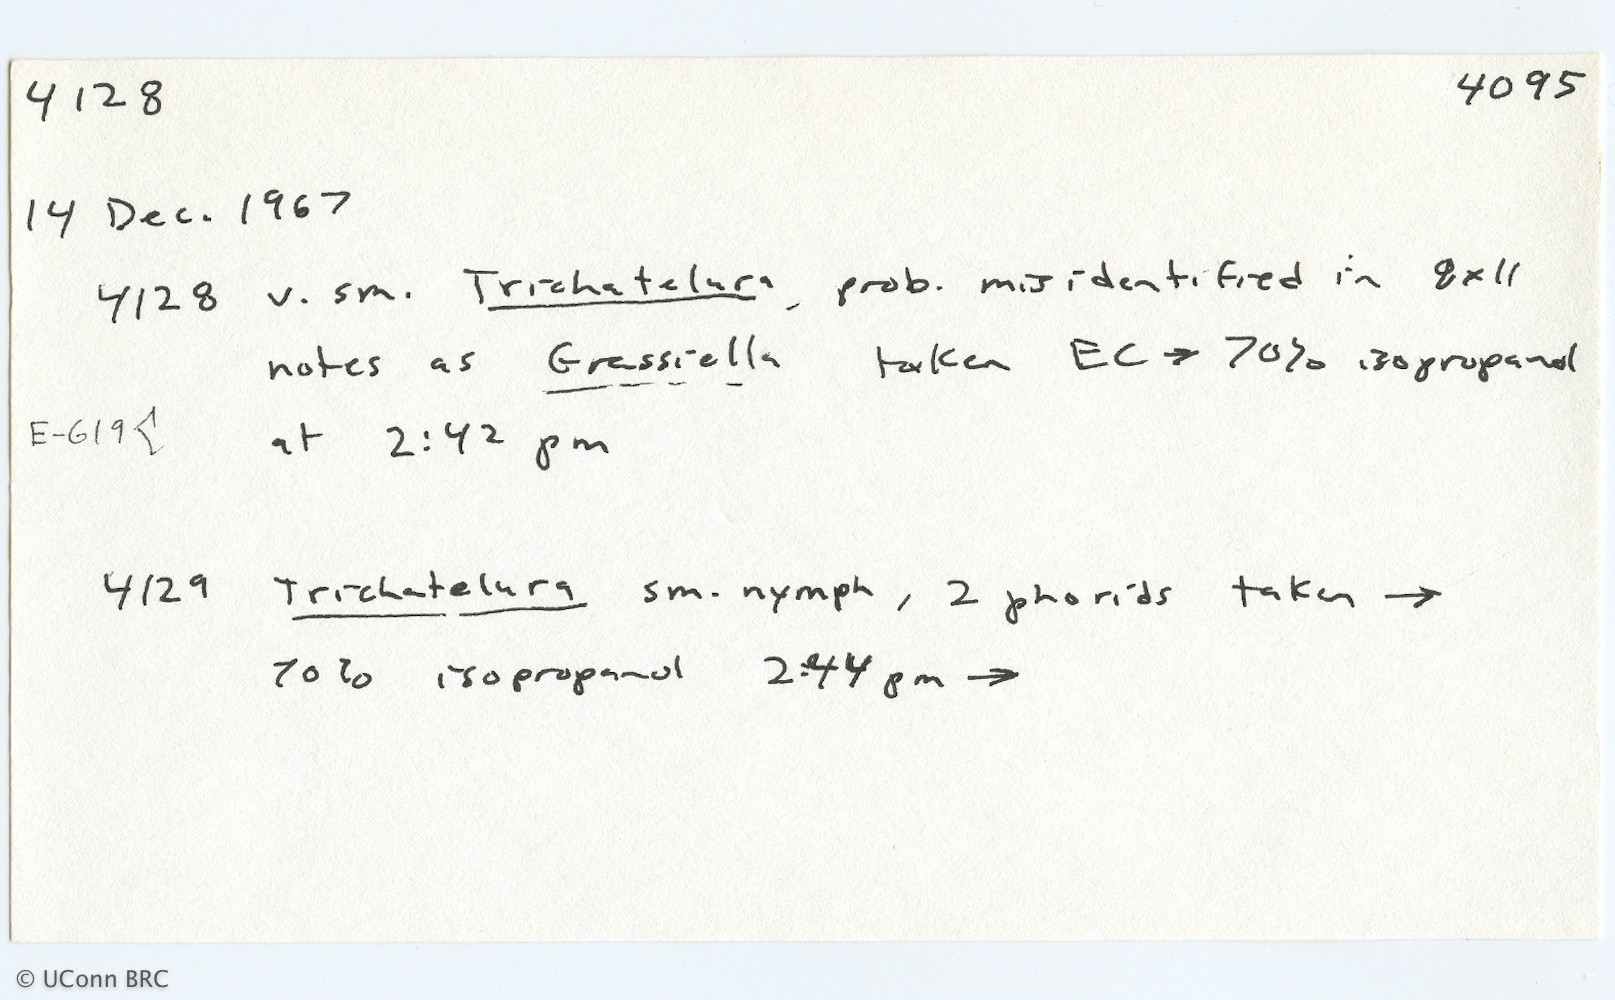 4128 4095
14 Dec. 1967
4128 v. sm. Trichatelura, prob. misidentified in 8x11
notes as Grassiella taken EC → 70% isopropanol
E-619{ at 2:42 pm
4129 Trichatelura sm. nymph, 2 phorids taken →
70% isopropanol 2:44 pm →
© UConn BRC